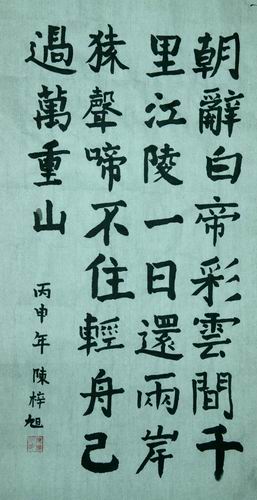 朝辭白帝彩雲間千
里江陵一日還兩岸
猿聲啼不住輕舟已
過萬重山
丙申年陳梓旭